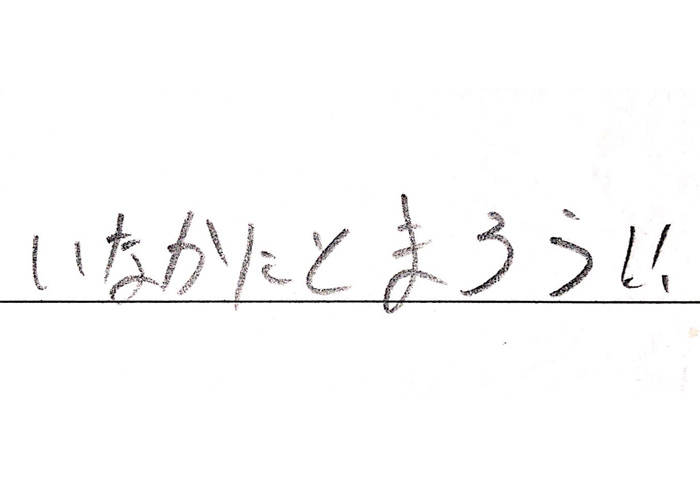 いなかにとまろう!!